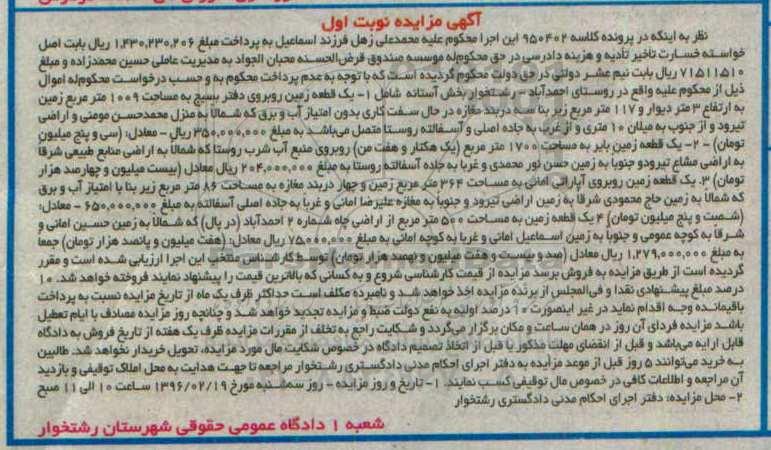 آگهی مزایده نوبت اول
نظر به اینکه در پرونده کلاسه ۹۵۰۴۰۲ این اجرا محکوم علیه محمدعلی زهل فرزند اسماعیل به پرداخت مبلغ ۱,۴۳۰,۲۳۰,۲۰۶ ریال بابت اصل
خواسته خسارت تاخیر تأدیه و هزینه دادرسی در حق محکوم‌له موسسه صندوق قرض‌الحسنه محبان الجواد به مدیریت عاملی حسین محمدزاده و مبلغ
۷۱۵۱۱۵۱۰ ریال بابت نیم عشر دولتی در حق دولت محکوم گردیده است که با توجه به عدم پرداخت محکوم به و حسب درخواست محکوم‌له اموال
ذیل از محکوم علیه واقع در روستای احمدآباد - رشتخوار بخش آستانه شامل ۱- یک قطعه زمین روبروی دفتر بسیج به مساحت ۱۰۰۹ متر مربع زمین
به ارتفاع ۳ متر دیوار و ۱۱۷ متر مربع زیر بنا سه دربند مغازه در حال سفت کاری بدون امتیاز آب و برق که شمالا به منزل محمدحسن مومنی و اراضی
تیرود و از جنوب به میلان ۱۰ متری و از غرب به جاده اصلی و آسفالته روستا متصل می‌باشد به مبلغ ۳۵۰,۰۰۰,۰۰۰ ریال - معادل: (سی و پنج میلیون
تومان) - ۲- یک قطعه زمین بایر به مساحت ۱۷۰۰ متر مربع (یک هکتار و هفت من) روبروی منبع آب شرب روستا که شمالا به اراضی منابع طبیعی شرقا
به اراضی مشاع تیرودو جنوبا به زمین حسن نور محمدی و غربا به جاده آسفالته روستا به مبلغ ۲۰۴,۰۰۰,۰۰۰ ریال معادل (بیست میلیون و چهارصد هزار
تومان) ۳. یک قطعه زمین روبروی آپاراتی امانی به مساحت ۳۶۴ متر مربع زمین و چهار دربند مغازه به مساحت ۸۶ متر مربع زیر بنا با امتیاز آب و برق
که شمالا به زمین حاج محمودی شرقا به زمین اراضی تیرود و جنوبا به مغازه علیرضا امانی و غربا به جاده اصلی آسفالته به مبلغ ۶۵۰,۰۰۰,۰۰۰ - معادل:
(شصت و پنج میلیون تومان) ۴ یک قطعه زمین به مساحت ۵۰۰ متر مربع از اراضی چاه شماره ۲ احمدآباد (در پال) که شمالا به زمین حسین امانی و
شرقا به کوچه عمومی و جنوبا به زمین اسماعیل امانی و غربا به کوچه امانی به مبلغ ۷۵۰۰۰,۰۰۰ ریال معادل: (هفت میلیون و پانصد هزار تومان) جمعا
به مبلغ ۱,۲۷۹,۰۰۰,۰۰۰ ریال معادل (صد و بیست و هفت میلیون و نهصد هزار تومان) توسط کارشناس منتخب این اجرا ارزیابی شده است و مقرر
گردیده است از طریق مزایده به فروش برسد مزایده از قیمت کارشناسی شروع و به کسانی که بالاترین قیمت را پیشنهاد نمایند فروخته خواهد شد. ۱۰
درصد مبلغ پیشنهادی نقدا و فی‌المجلس از برنده مزایده اخذ خواهد شد و نامبرده مکلف است حداکثر ظرف یک ماه از تاریخ مزایده نسبت به پرداخت
باقیمانده وجه اقدام نماید در غیر اینصورت ۱۰ درصد اولیه به نفع دولت ضبط و مزایده تجدید خواهد شد و چنانچه روز مزایده مصادف با ایام تعطیل
باشد مزایده فردای آن روز در همان ساعت و مکان برگزار می‌گردد و شکایت راجع به تخلف از مقررات مزایده ظرف یک هفته از تاریخ فروش به دادگاه
قابل ارایه می‌باشد و قبل از انقضای مهلت مذکور یا قبل از اتخاذ تصمیم دادگاه در خصوص شکایت مال مورد مزایده، تحویل خریدار نخواهد شد. طالبین
به خرید می‌توانند ۵ روز قبل از موعد مزایده به دفتر اجرای احکام مدنی دادگستری رشتخوار مراجعه تا جهت هدایت به محل املاک توقیفی و بازدید
آن مراجعه و اطلاعات کافی در خصوص مال توقیفی کسب نمایند. ۱- تاریخ و روز مزایده - روز سه‌شنبه مورخ ۱۳۹۶/۰۲/۱۹ ساعت ۱۰ الی ۱۱ صبح
۲- محل مزایده: دفتر اجرای احکام مدنی دادگستری رشتخوار
شعبه ۱ دادگاه عمومی حقوقی شهرستان رشتخوار